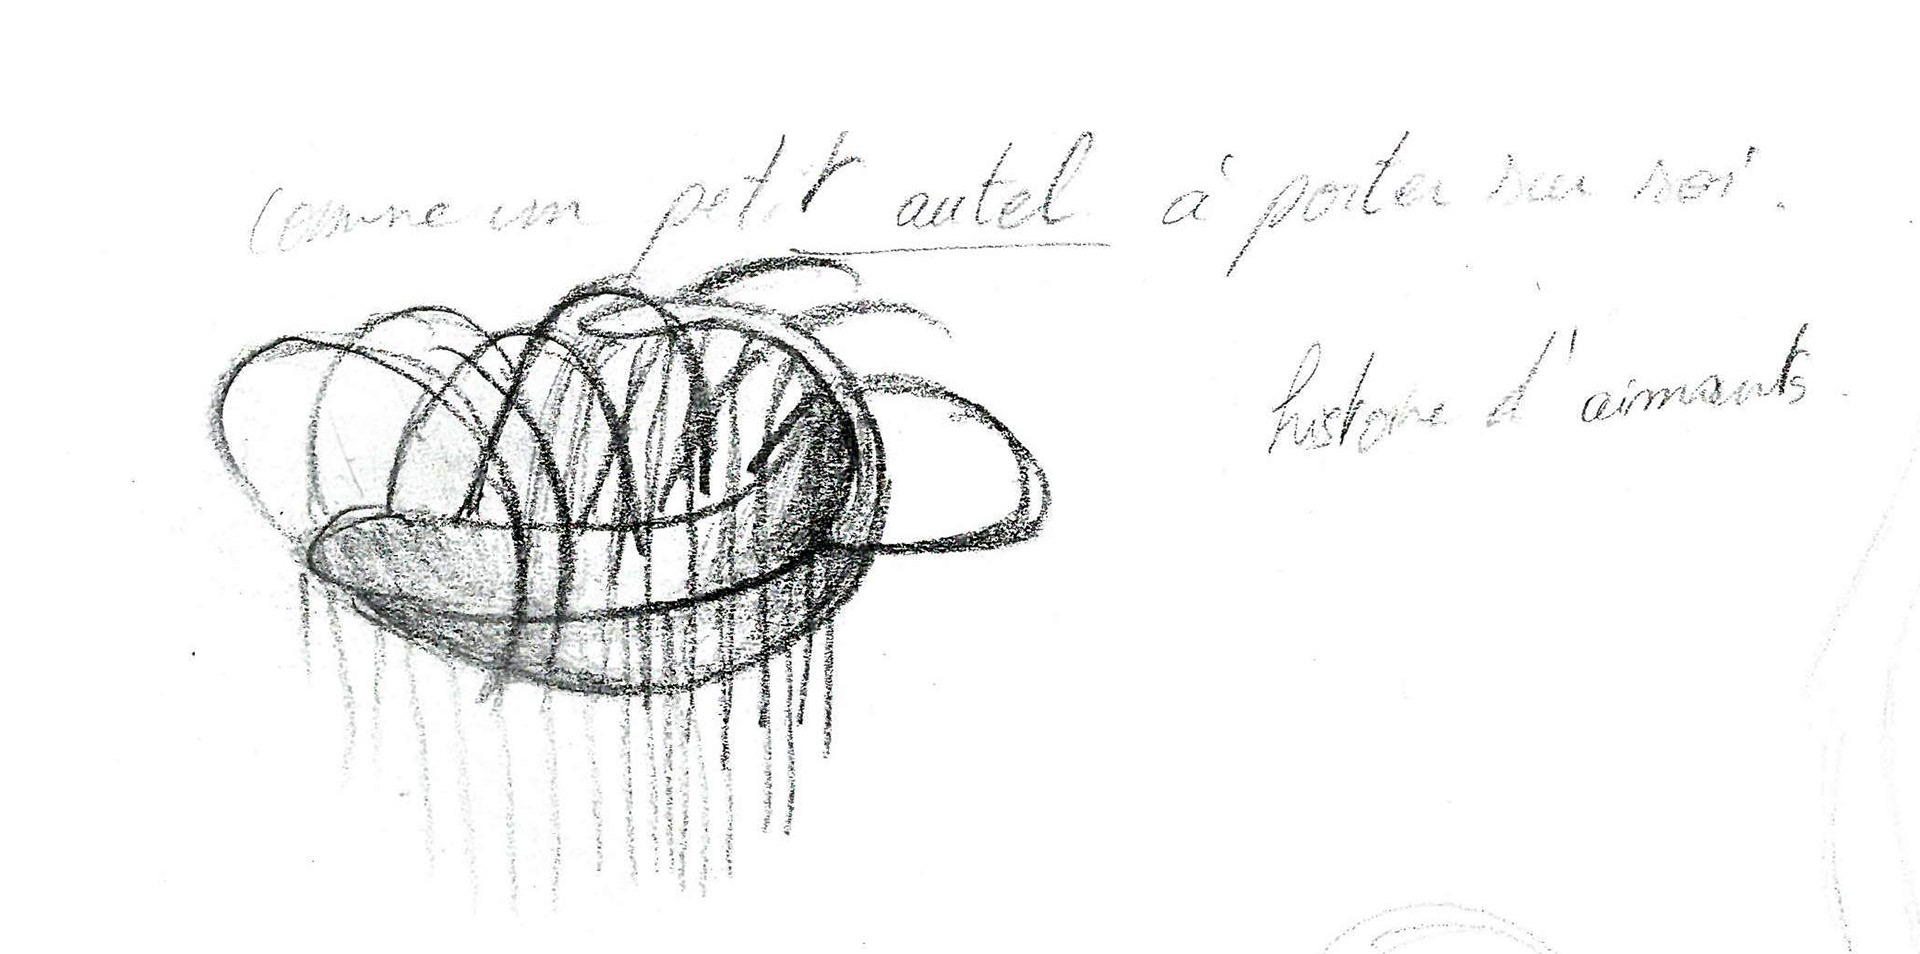 comme un petit autel à porter sur soi.
histoire d'aimants.